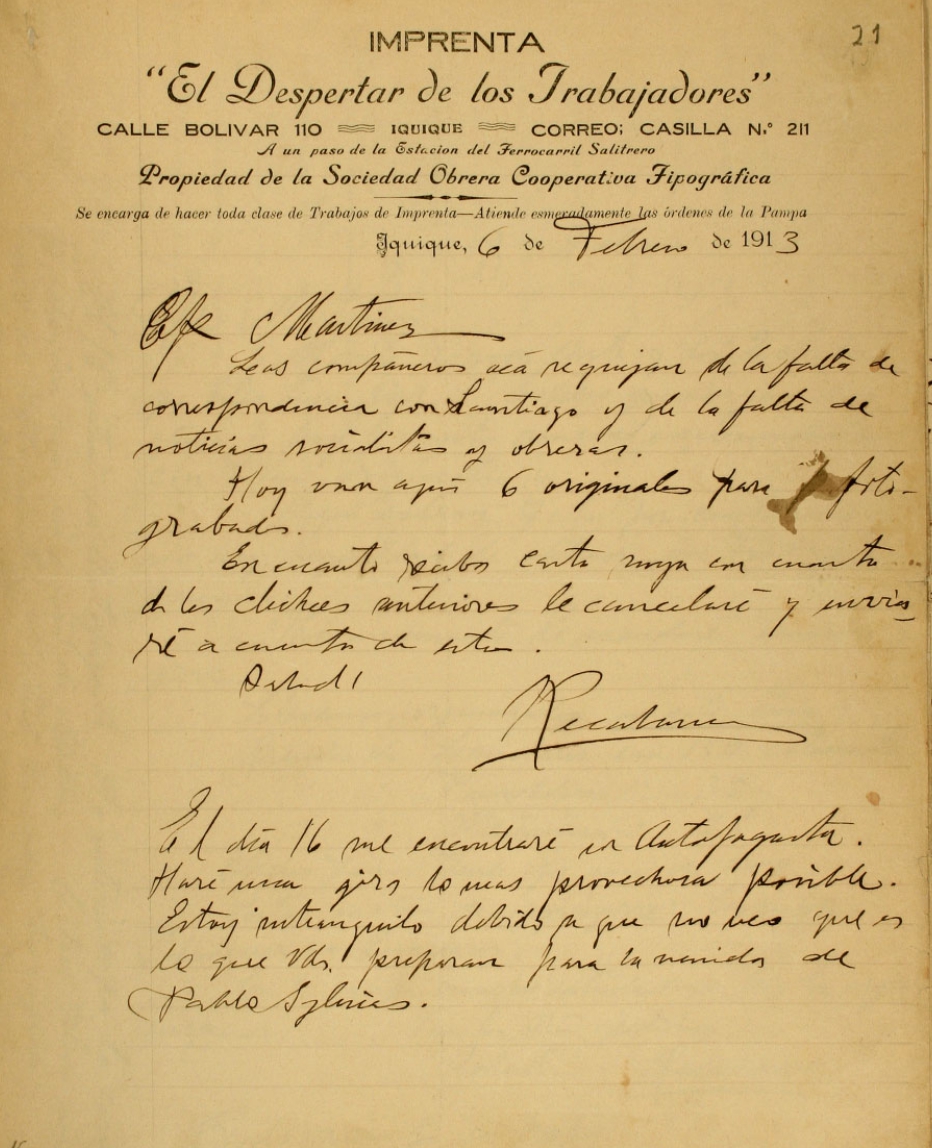 21
IMPRENTA
"El Despertar de los Trabajadores"
CALLE BOLIVAR 110 IQUIQUE CORREO; CASILLA N.º 211
A un paso de la Estacion del Ferrocarril Salitrero
Propiedad de la Sociedad Obrera Cooperativa Tipográfica
Se encarga de hacer toda clase de Trabajos de Imprenta—Atiende esmeradamente las órdenes de la Pampa
Iquique, 6 de Febrero de 1913
Martinez
Los compañeros acá se quejan de la falta de
correspondencia con Santiago y de la falta de
noticias socialistas y obreras.
Hoy van aquí 6 originales para foto-
grabados.
En cuanto reciba carta suya con cuenta
de los clichees anteriores le cancelaré y envia-
ré a cuenta de estos.
Salud!
Recabarren
El día 16 me encontraré en Antofagasta.
Haré una gira lo mas provechosa posible.
Estoy intranquilo debido a que no veo que es
lo que Vds. preparan para la venida de
Pablo Iglesias.